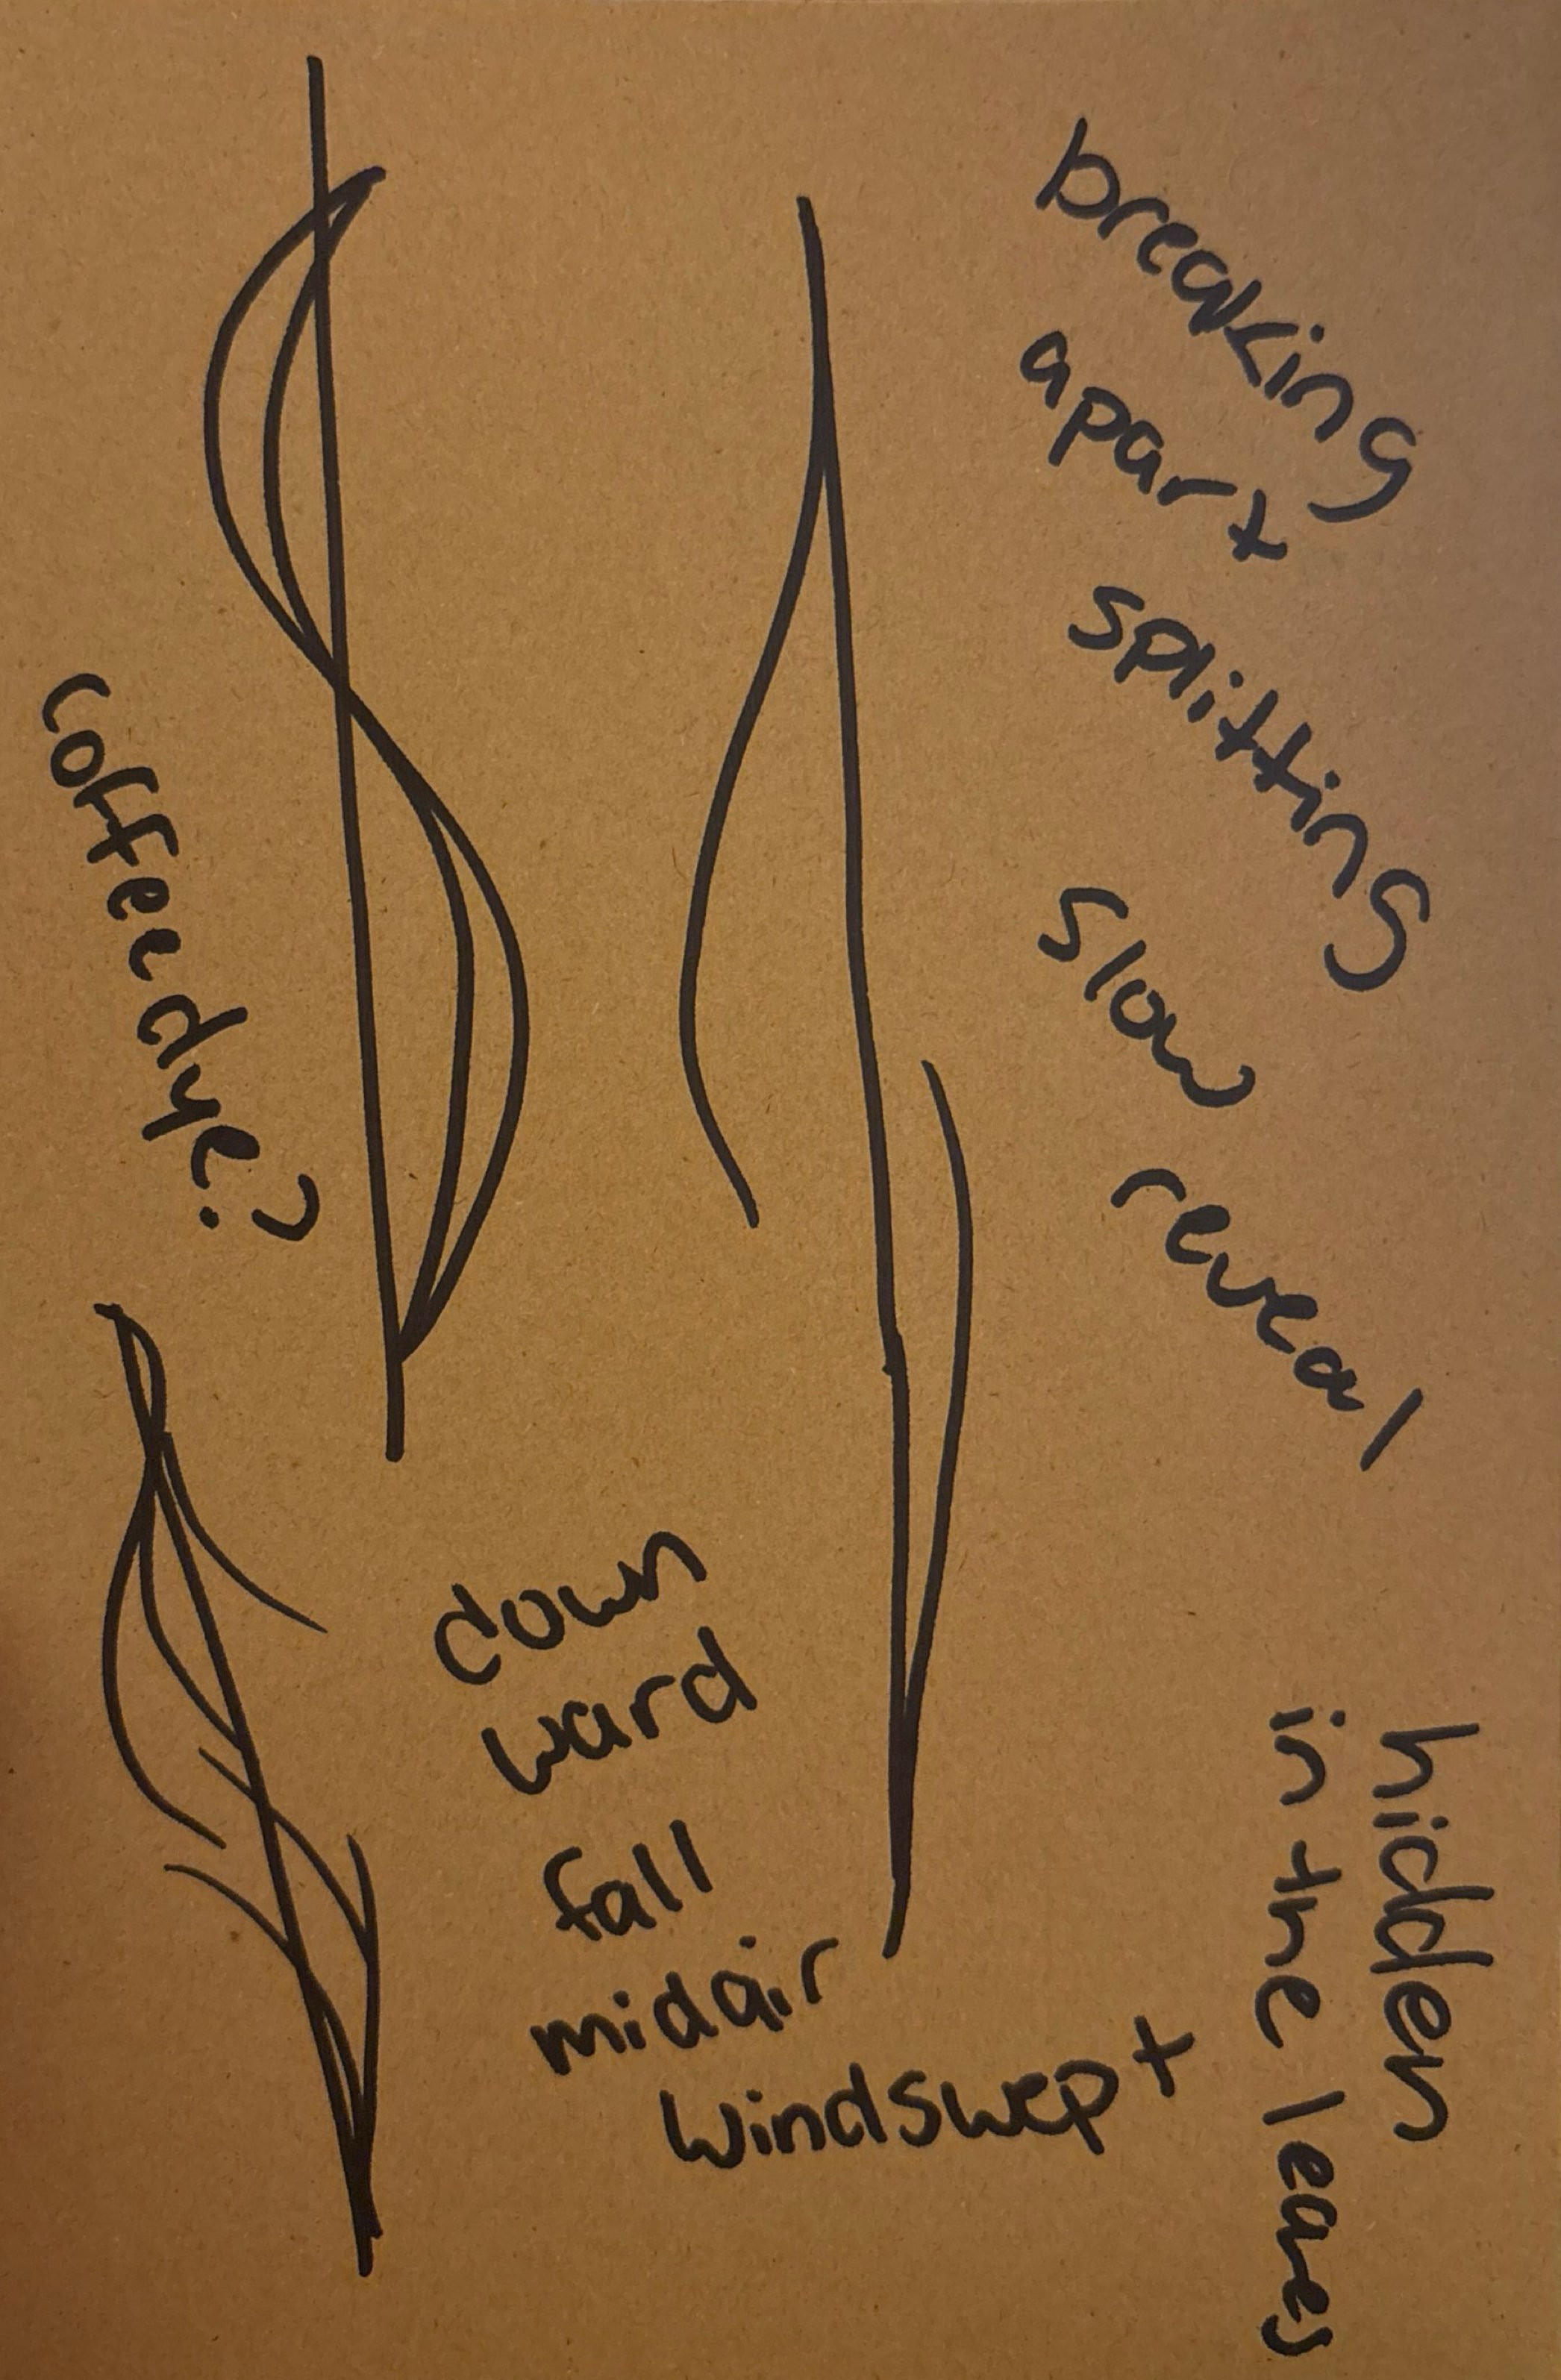 breaking
apart
splitting
slow
reveal
hidden
in the leaves
coffee dye?
down
ward
fall
midair
windswept